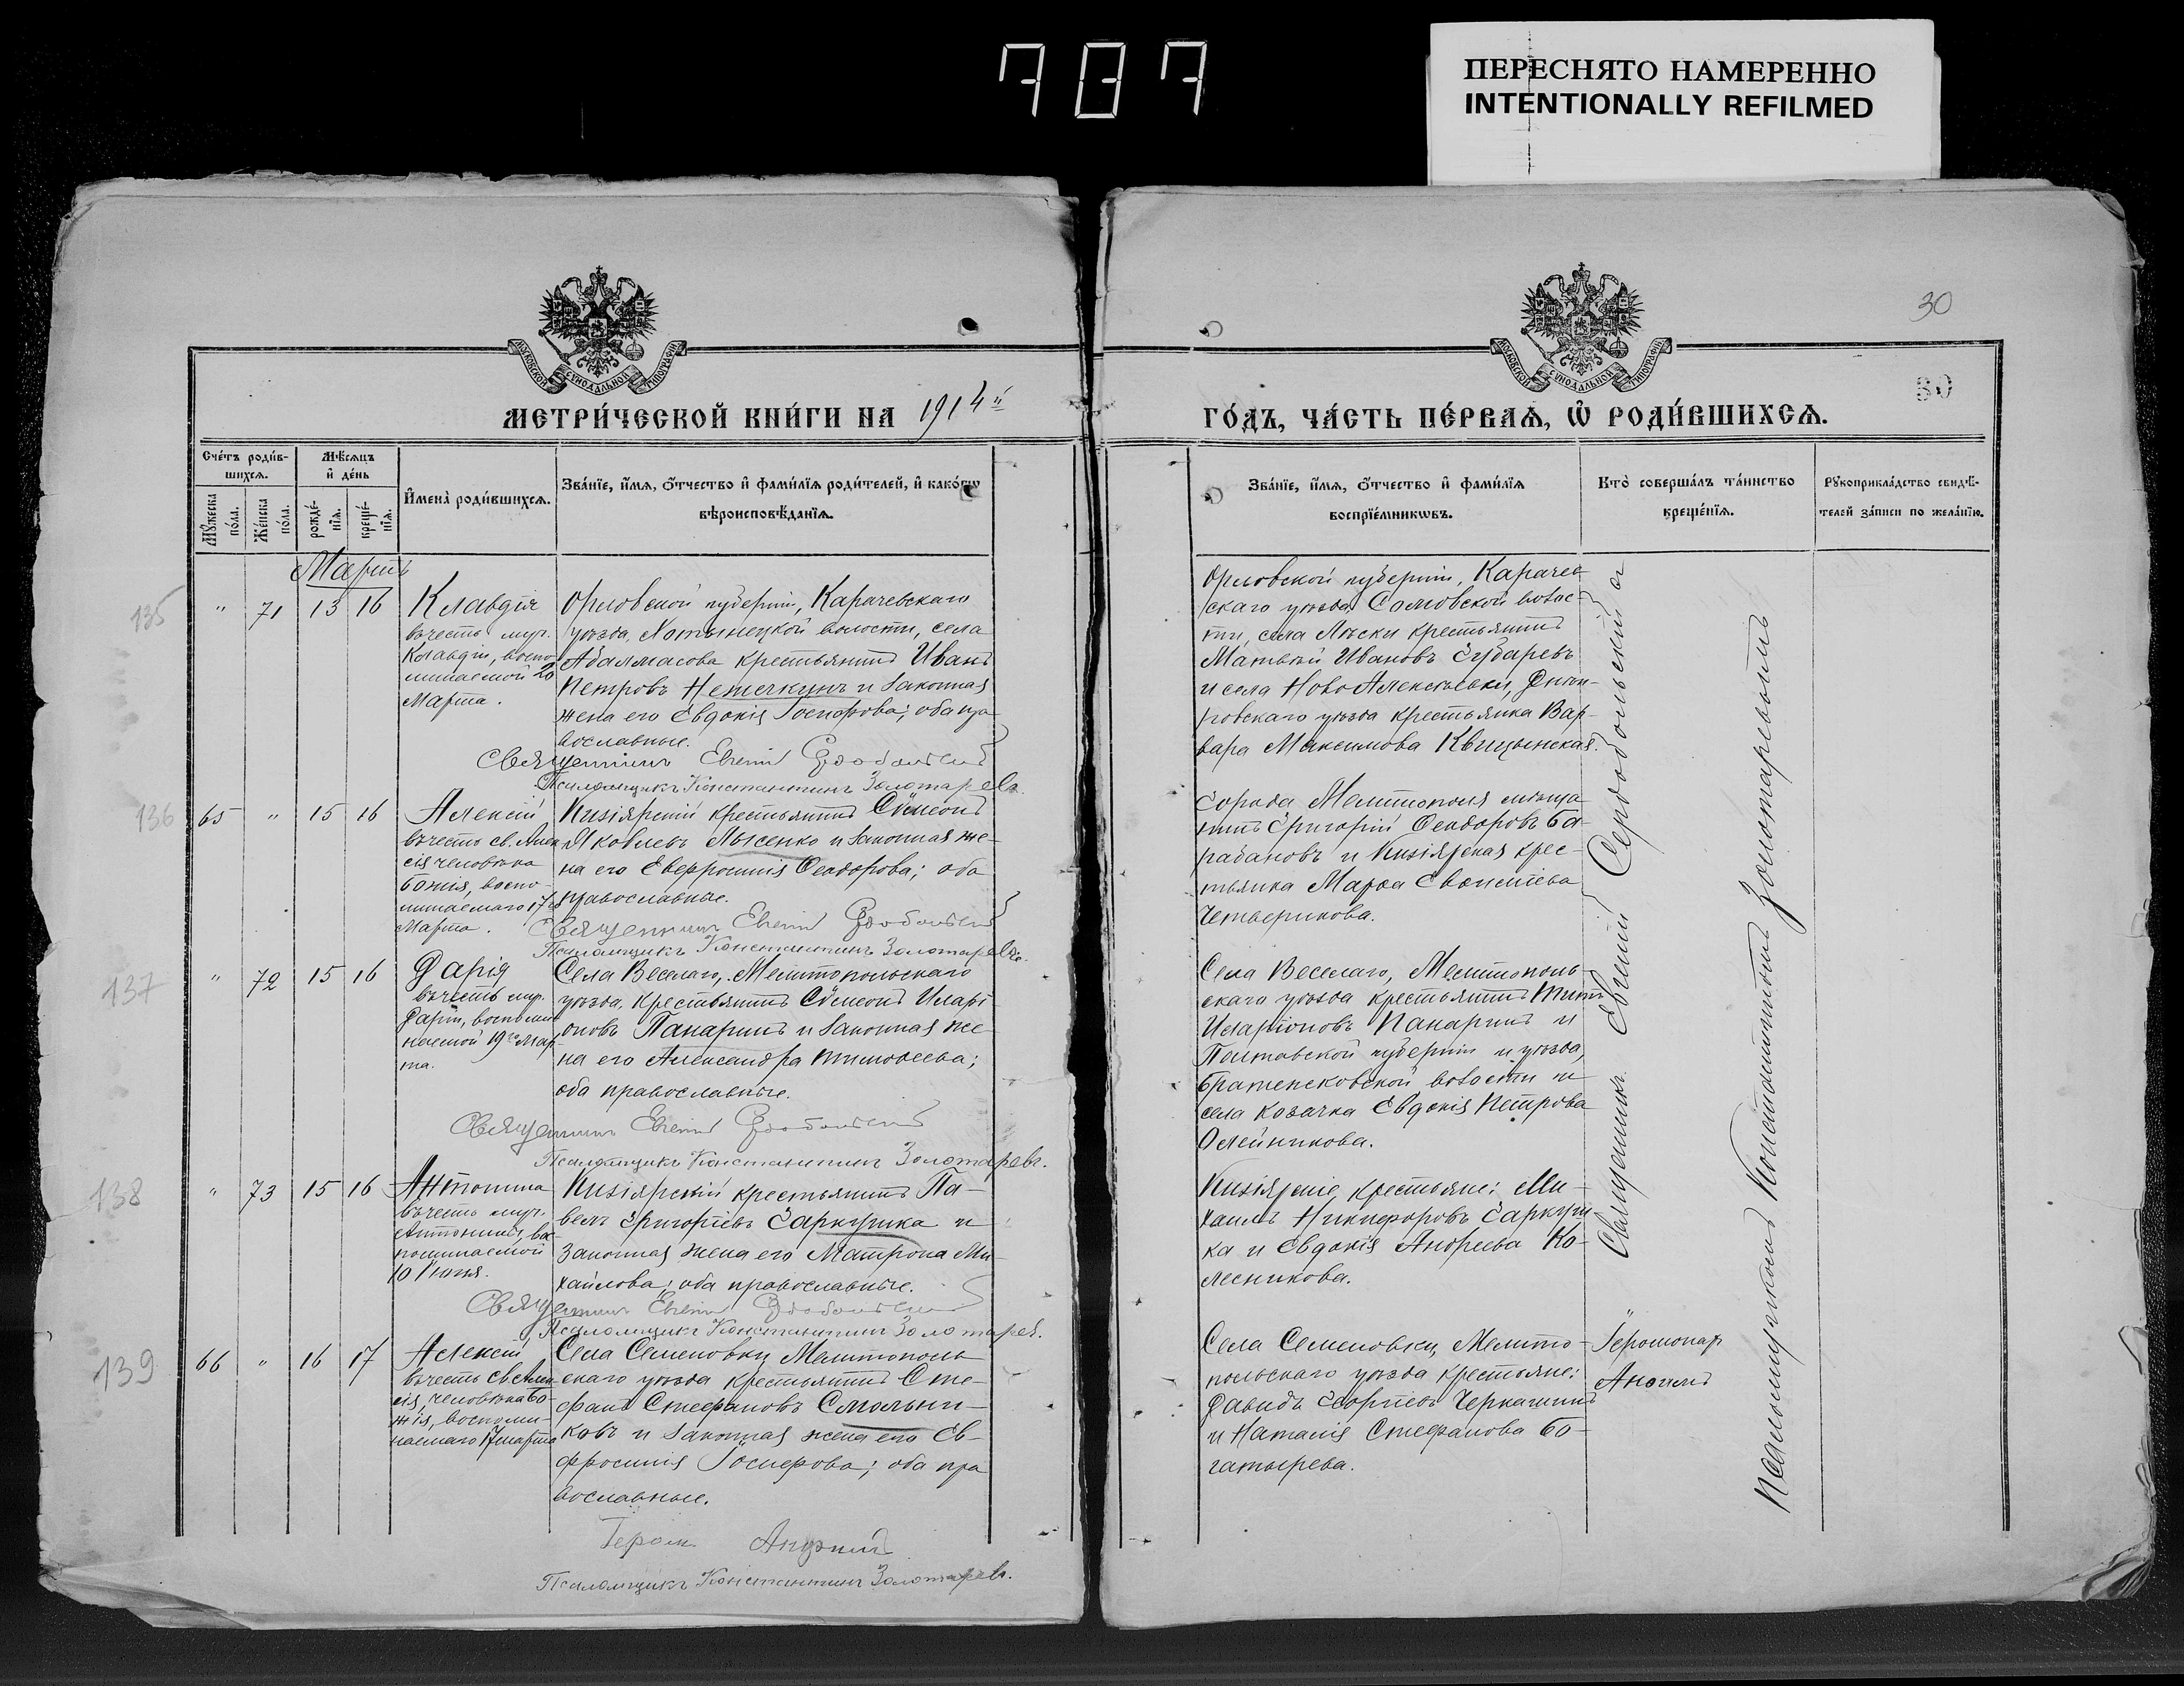 787
ПЕРЕСНЯТО НАМЕРЕННО
INTENTIONALLY REFILMED
30
30
МОСКОВСКОЙ СѴНОДАЛЬНОЙ ТИПОГРАФІИ
МОСКОВСКОЙ СѴНОДАЛЬНОЙ ТИПОГРАФІИ
МЕТРИ́ЧЕСКОЙ КНИ́ГИ НА 1914й
ГО́ДЪ, ЧА́СТЬ ПЕ́РВАѦ, Ѡ҆ РОДИ́ВШИХСѦ.
Сче́тъ роди́в-
шихсѧ.
Мꙋ́жеска по́ла.
Же́нска по́ла.
Мѣ́сѧцъ
и҆ де́нь
рожде́-
нїѧ.
креще́-
нїѧ.
И҆мена̀ роди́вшихсѧ.
Зва́нїе, и҆́мѧ, ѻ҆́тчество и҆ фами́лїѧ роди́телей, и҆ како́гѡ
вѣроисповѣ́данїѧ.
Зва́нїе, и҆́мѧ, ѻ҆́тчество и҆ фами́лїѧ
воспрїе́мникѡвъ.
Кто̀ соверша́лъ та́инство
креще́нїѧ.
Рꙋкоприкла́дство свидѣ́-
телей за́писи по жела́нїю.
Мартъ
135
" 71 13 16
Клавдія
въ честь муч.
Клавдіи, воспо-
минаемой 20
Марта.
Орловской губерніи, Карачевскаго
уѣзда, Хотынецкой волости, села
Абалмасова крестьянинъ Иванъ
Петровъ Нетечкунъ и законная
жена его Евдокія Іосифова; оба пра
вославные.
Священникъ Евгеній Сердобольскій
Псаломщикъ Константинъ Золотаревъ.
Орловской губерніи, Карачев
скаго уѣзда, Сомовской волос-
ти, села Лѣски крестьянинъ
Матвѣй Ивановъ Губаревъ
и села НовоАлексѣевки, Днѣп-
ровскаго уѣзда крестьянка Вар-
вара Максимова Квицынская.
136
65 " 15 16
Алексій
въ честь св. Алек
сія человѣка
Божія, воспо-
минаемаго 17го
Марта.
Кизіярскій крестьянинъ Сѵмеонъ
Яковлевъ Лысенко и законная же-
на его Евфросинія Ѳеодорова; оба
православные.
Священникъ Евгеній Сердобольскій
Псаломщикъ Константинъ Золотаревъ.
Города Мелитополя мѣща
нинъ Григорій Ѳеодоровъ Ба-
рабановъ и Кизіярская крес-
тьянка Марѳа
Четверикова.
137
" 72 15 16
Дарія
въ честь муч.
Даріи, воспоми
наемой 19го Мар
та.
Села Веселаго, Мелитопольскаго
уѣзда, крестьянинъ Сѵмеонъ Иларі
оновъ Панаринъ и законная же
на его Александра Тимоѳеева;
оба православные.
Священникъ Евгеній Сердобольскій
Псаломщикъ Константинъ Золотаревъ.
Села Веселаго, Мелитополь
скаго уѣзда крестьянинъ Титъ
Иларіоновъ Панаринъ и
Полтавской губерніи и уѣзда,
волости и
села козачка Евдокія Петрова
Олейникова.
138
" 73 15 16
Антонина
въ честь муч.
Антонины, вос
поминаемой
10 Іюня.
Кизіярскій крестьянинъ Па-
велъ Григорьевъ Гаркушка и
законная жена его Матрона Ми-
хайлова; оба православные.
Священникъ Евгеній Сердобольскій
Псаломщикъ Константинъ Золотаревъ.
Кизіярскіе крестьяне: Ми-
хаилъ Никифоровъ Гаркуш
ка и Евдокія Андреева Ко-
лесникова.
139
66 " 16 17
Алексій
въ честь св. Алек
сія, человѣка Бо-
жія, воспоми-
наемаго 17 марта
Села Семеновки, Мелитополь
скаго уѣзда крестьянинъ Сте-
фанъ Стефановъ Смольни-
ковъ и законная жена его Ев-
фросинія Іосифова; оба пра
вославные.
Іером.
Псаломщикъ Константинъ Золотаревъ.
Села Семеновки, Мелито-
польскаго уѣзда крестьяне:
Давидъ Георгіевъ Черкашинъ
и Наталія Стефанова Бо-
гатырева.
Іеромонах
Священникъ Евгеній Сердобольскій
Псаломщикъ Константинъ Золотаревъ